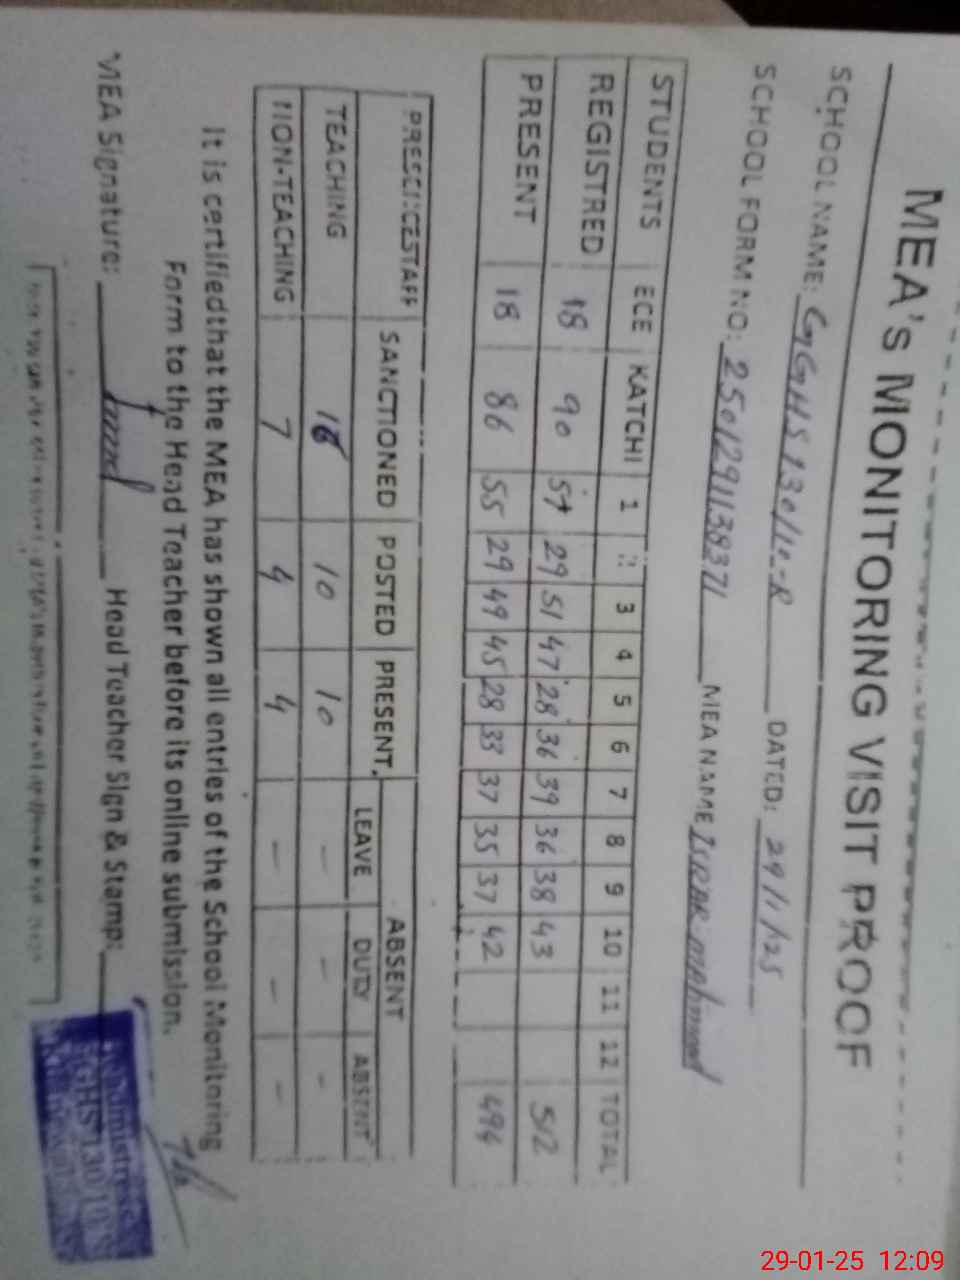 MEA'S MONITORING VISIT PROOF
SCHOOL NAME: GGHS 130/10-R DATED: 29/1/25
SCHOOL FORM NO: 2501291138371 MEA NAME Israr mahmood
STUDENTS ECE KATCHI 1 3 4 5 6 7 8 9 10 11 12 TOTAL
REGISTRED 18 90 57 29 51 47 28 36 39 36 38 43 512
PRESENT 18 86 55 29 49 45 28 33 37 35 37 42 494
STAFF SANCTIONED POSTED PRESENT ABSENT
LEAVE DUTY ABSENT
TEACHING 18 10 10 - - -
NON-TEACHING 7 4 4 - - -
It is certified that the MEA has shown all entries of the School Monitoring
Form to the Head Teacher before its online submission.
MEA Signature: Head Teacher Sign & Stamp:
Headmistress
GGHS 130/10
29-01-25 12:09